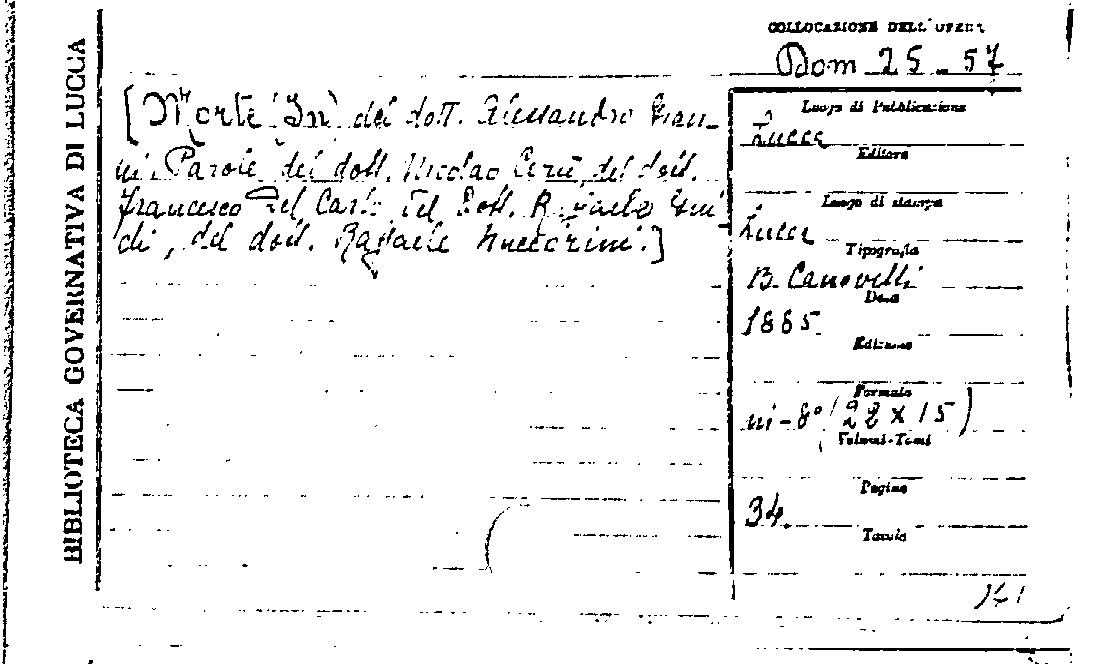 BIBLIOTECA GOVERNATIVA DI LUCCA
COLLOCAZIONE DELL'OPERA
Dom 25-57
[Morte (In) del dott. Alessandro Gian-
ni. Parole del dott. Nicolao Cerù, del dott.
Francesco Del Carlo del Dott. Raffaello Gui-
di, del dott. Raffaele Nuccorini.]
Luogo di Pubblicazione
Lucca
Editore
Luogo di stampa
Lucca
Tipografia
B. Canovetti
Data
1885
Edizione
Formato
in-8° (22 x 15)
Volumi-Tomi
Pagine
34.
Tavole